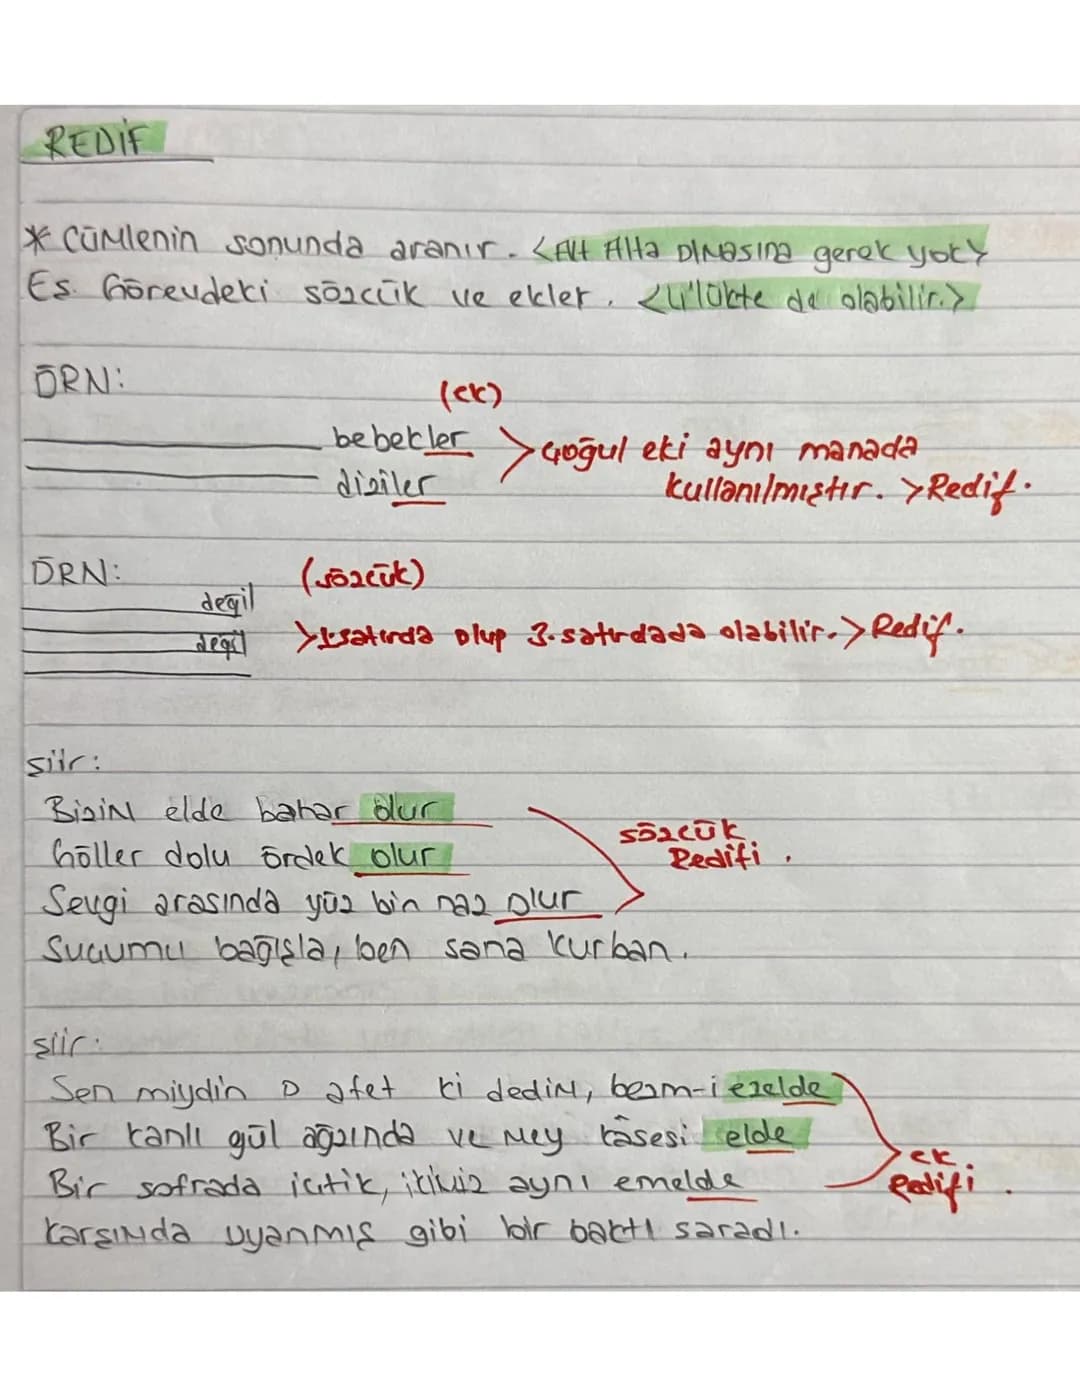 REDİF
* Cümlenin sonunda aranır. <Alt Alta olmasına gerek yok>
Es Görevdeki sözcük ve ekler. <Lilükte de olabilir.>
ÖRN:
(ek)
bebekler > çoğul eki aynı manada
diziler kullanılmıştır. > Redif.
ÖRN:
(sözcük)
değil
değil > 1.satırda olup 3.satırdada olabilir. > Redif.
şiir:
Bizim elde bahar olur
Göller dolu ördek olur
sözcük
Redifi.
Sevgi arasında yüz bin naz olur
Suçumu bağışla, ben sana kurban.
şiir:
Sen miydin o afet ki dedim, bezm-i ezelde
Bir kanlı gül ağzında ve mey kâsesi elde
ek
Redifi.
Bir sofrada içtik, ikimiz aynı emelde
Karşımda uyanmış gibi bir baktı sarardı.